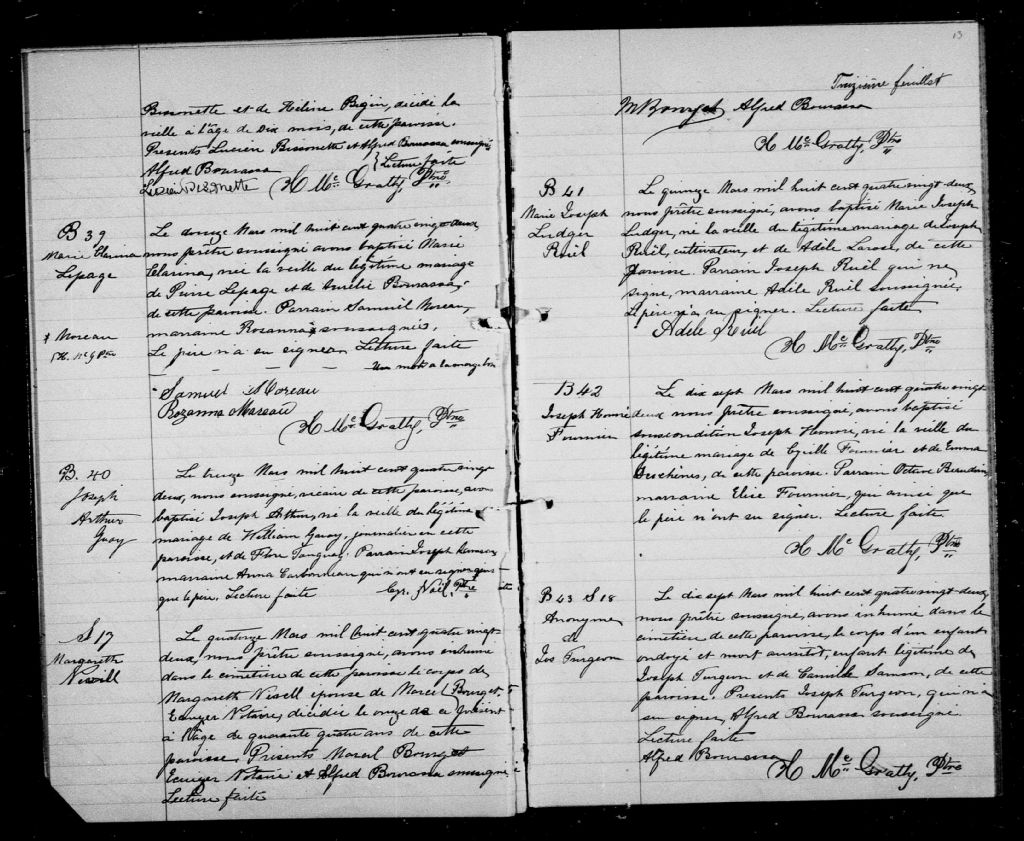 Bissonette et de Hélène Bégin, décédé la
veille à l'âge de Dix mois, de cette paroisse.
Presents Lucien Bissonette et Alfred Bourassa soussignés
Alfred Bourassa } Lecture faite
Lucien Bissonette H Mc Gratty, Ptre
B 39
Marie Clarina
Lepage
Le douze Mars mil huit cent quatre vingt deux
nous prêtre soussigné avons baptisé Marie
Clarina, née la veille du légitime mariage
de Pierre Lepage et de Aurélie Bourassa,
de cette paroisse. Parrain Samuel Moreau,
marraine Rozanna x soussignés.
Le père n'a su signer. Lecture faite
Un mot à la marge bon
x Moreau
H. McG Ptre
Samuel Moreau
Rozanna Mareau
H Mc Gratty, Ptre
B. 40
Joseph
Arthur
Guay
Le treize Mars mil huit cent quatre vingt
deux, nous soussigné, vicaire de cette paroisse, avons
baptisé Joseph Arthur, né la veille du légitime
mariage de William Guay, journalier en cette
paroisse, et de Flore Tanguay. Parrain Joseph
marraine Anna Carbonneau qui n'ont su signer ainsi
que le père. Lecture faite Cyr. Noël, Ptre
S 17
Margareth
Nevill
Le quatorze Mars mil huit cent quatre vingt-
deux, nous prêtre soussigné, avons enhumé
dans le cimetière de cette paroisse le corps de
Margareth Nevell épouse de Marcel Bourget,
Ecuyer Notaire, décédée le onze de ce présent
à l'âge de quarante quatre ans de cette
paroisse. Présents Marcel Bourget
Ecuyer Notaire et Alfred Bourassa soussignés
Lecture faite
13
Treizième feuillet
M Bourget Alfred Bourassa
H Mc Gratty, Ptre
B 41
Marie Joseph
Ludger
Ruël
Le quinze Mars mil huit cent quatre vingt deux
nous prêtre soussigné, avons baptisé Marie Joseph
Ludger, né la veille du légitime mariage de Joseph
Ruël, cultivateur, et de Adèle Larose, de cette
paroisse. Parrain Joseph Ruël qui ne
signe, marraine Adèle Ruël soussignée,
Le père n'a su signer. Lecture faite
Adèle Ruel
H Mc Gratty, Ptre
B 42
Joseph Honoré
Fournier
Le dix sept Mars mil huit cent quatre vingt
deux nous prêtre soussigné, avons baptisé
sous condition Joseph Honoré, né la veille du
légitime mariage de Cyrille Fournier et de Emma
Deschènes, de cette paroisse. Parrain Octave Beaudoin
marraine Elise Fournier, qui ainsi que
le père n'ont su signer. Lecture faite
H Mc Gratty, Ptre
B 43 S 18
Anonyme
de
Jos Turgeon
Le dix sept Mars mil huit cent quatre vingt deux,
nous prêtre soussigné, avons inhumé dans le
cimetière de cette paroisse, le corps d'un enfant
ondoyé et mort aussitôt, enfant légitime de
Joseph Turgeon et de Camille Samson, de cette
paroisse. Presents Joseph Turgeon, qui n'a
su signer, Alfred Bourassa soussigné
Lecture faite
Alfred Bourassa
H Mc Gratty, Ptre